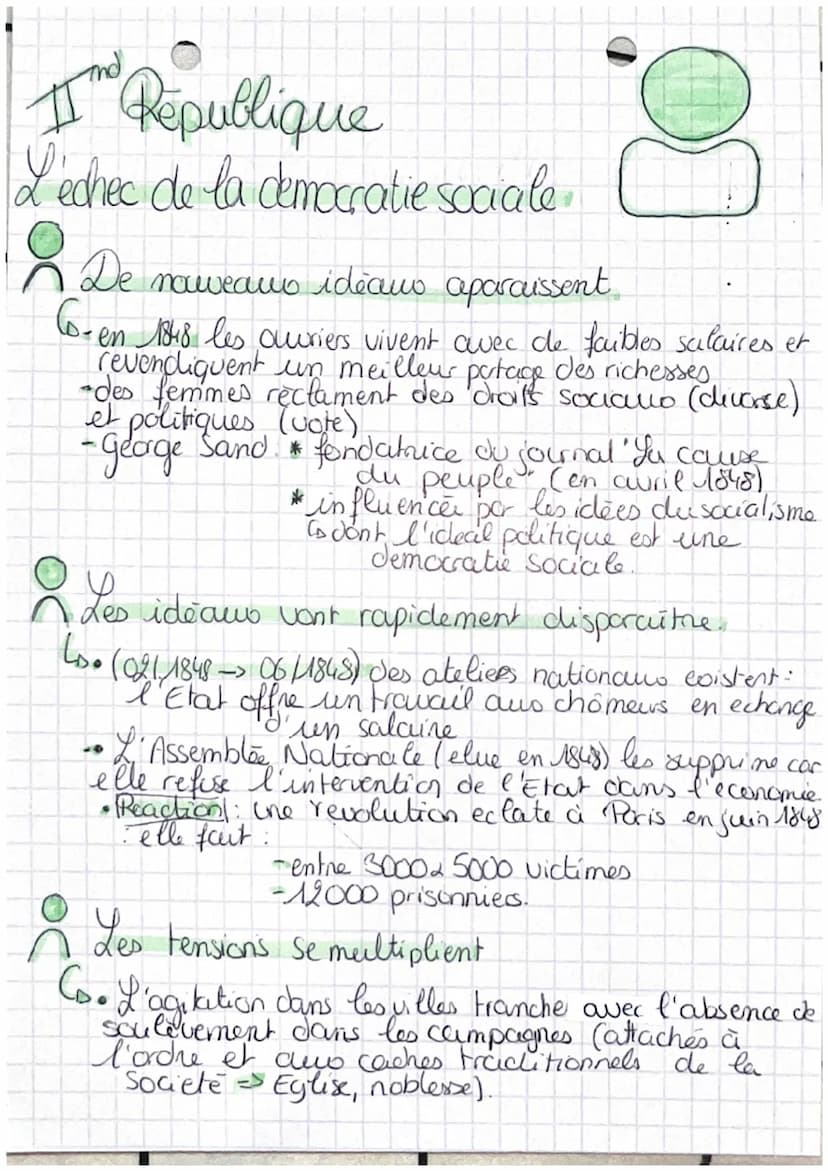 IInd République
L'échec de la democratie sociale
De nouveaux idéaux aparaissent
- en 1848 les ouvriers vivent avec de faibles salaires et
revendiquent un meilleur partage des richesses
- des femmes réclament des droits sociaux (divorse)
et politiques (vote)
- George Sand * fondatrice du journal "La cause
du peuple" (en avril 1848)
* influencée par les idées du socialisme
↳ dont l'ideal politique est une
democratie sociale.
Les idéaux vont rapidement disparaitre.
• (02/1848 -> 06/1848) des ateliers nationaux existent :
l'Etat offre un travail aux chômeurs en echange
d'un salaire
• L'Assemblée Nationale (elue en 1848) les supprime car
elle refuse l'intervention de l'Etat dans l'economie
• Reaction : une revolution eclate à Paris en juin 1848
elle fait :
- entre 3000 à 5000 victimes
- 12000 prisonniers.
Les tensions se multiplient
• L'agitation dans les villes tranche avec l'absence de
soulèvement dans les campagnes (attachés à
l'ordre et aux cadres traditionnels de la
Société => Eglise, noblesse).